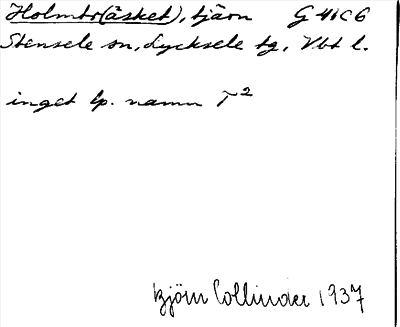 Holmtr(äsket), tjärn G 41C6
Stensele sn, Lycksele tg, Vbt l.
inget lp. namn T²
Björn Collinder 1937